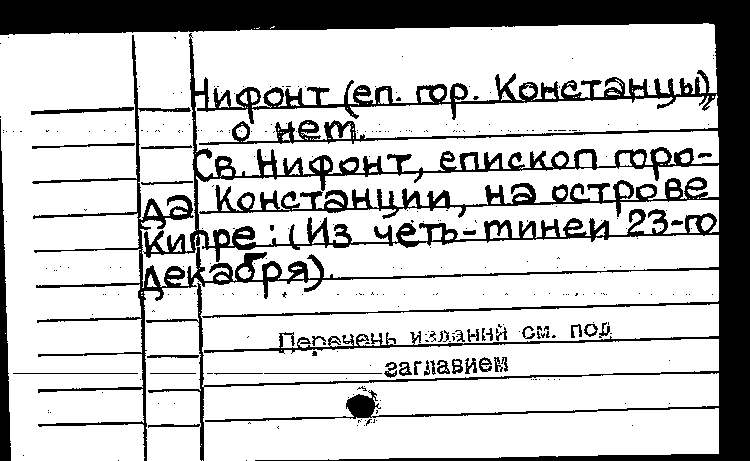 Нифонт (еп. гор. Констанцы),
о нет.
Св. Нифонт, епископ горо-
да Констанции, на острове
Кипре: (Из четь-тинеи 23-го
декабря).
Перечень изданий см. под
заглавием